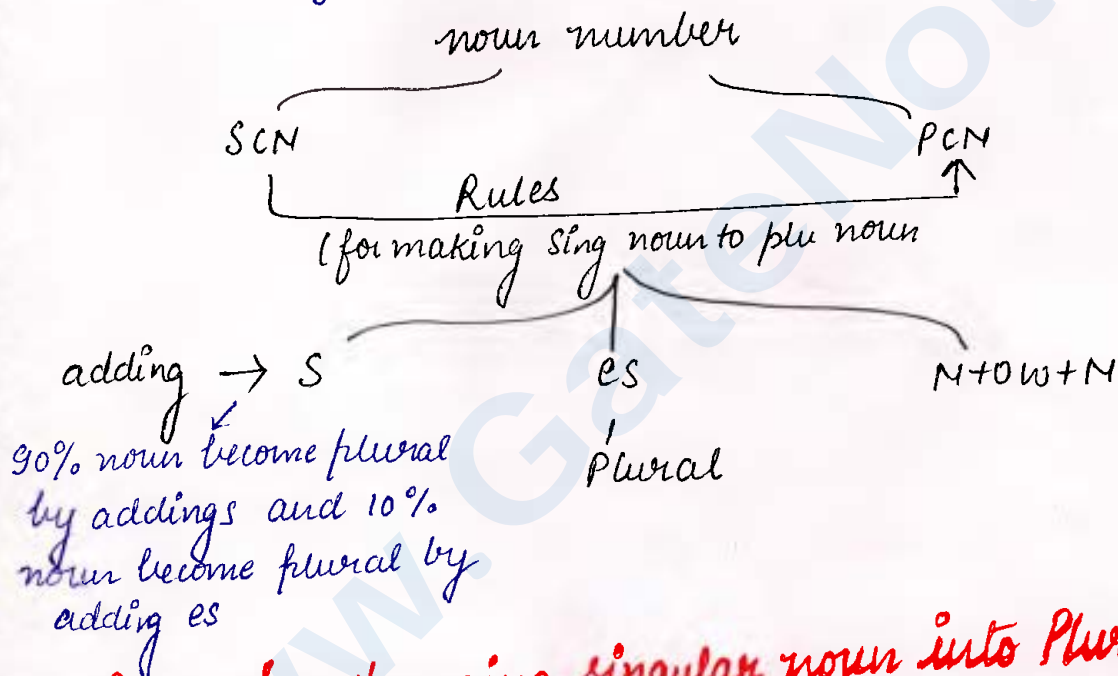 noun number
SCN PCN
Rules
(for making Sing noun to plu noun
adding → S es N+OW+N
90% noun become plural Plural
by addings and 10%
noun become plural by
adding es
singular noun into Plur
www.GateNot